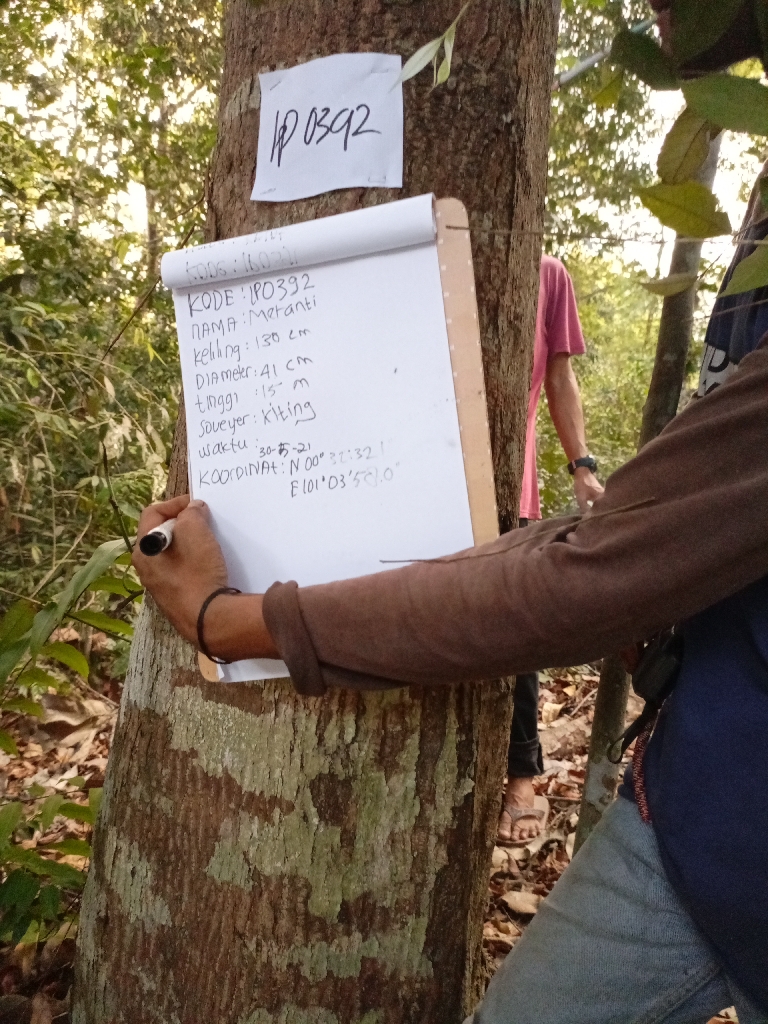 IP0392
KODE: IP0392
NAMA: Meranti
keliling: 130 cm
DIAMeter: 41 cm
tinggi : 15 m
soveyer: Kiting
waktu : 30-5-21
KOORDINAt: N 00° 32'32.1"
E101°03'